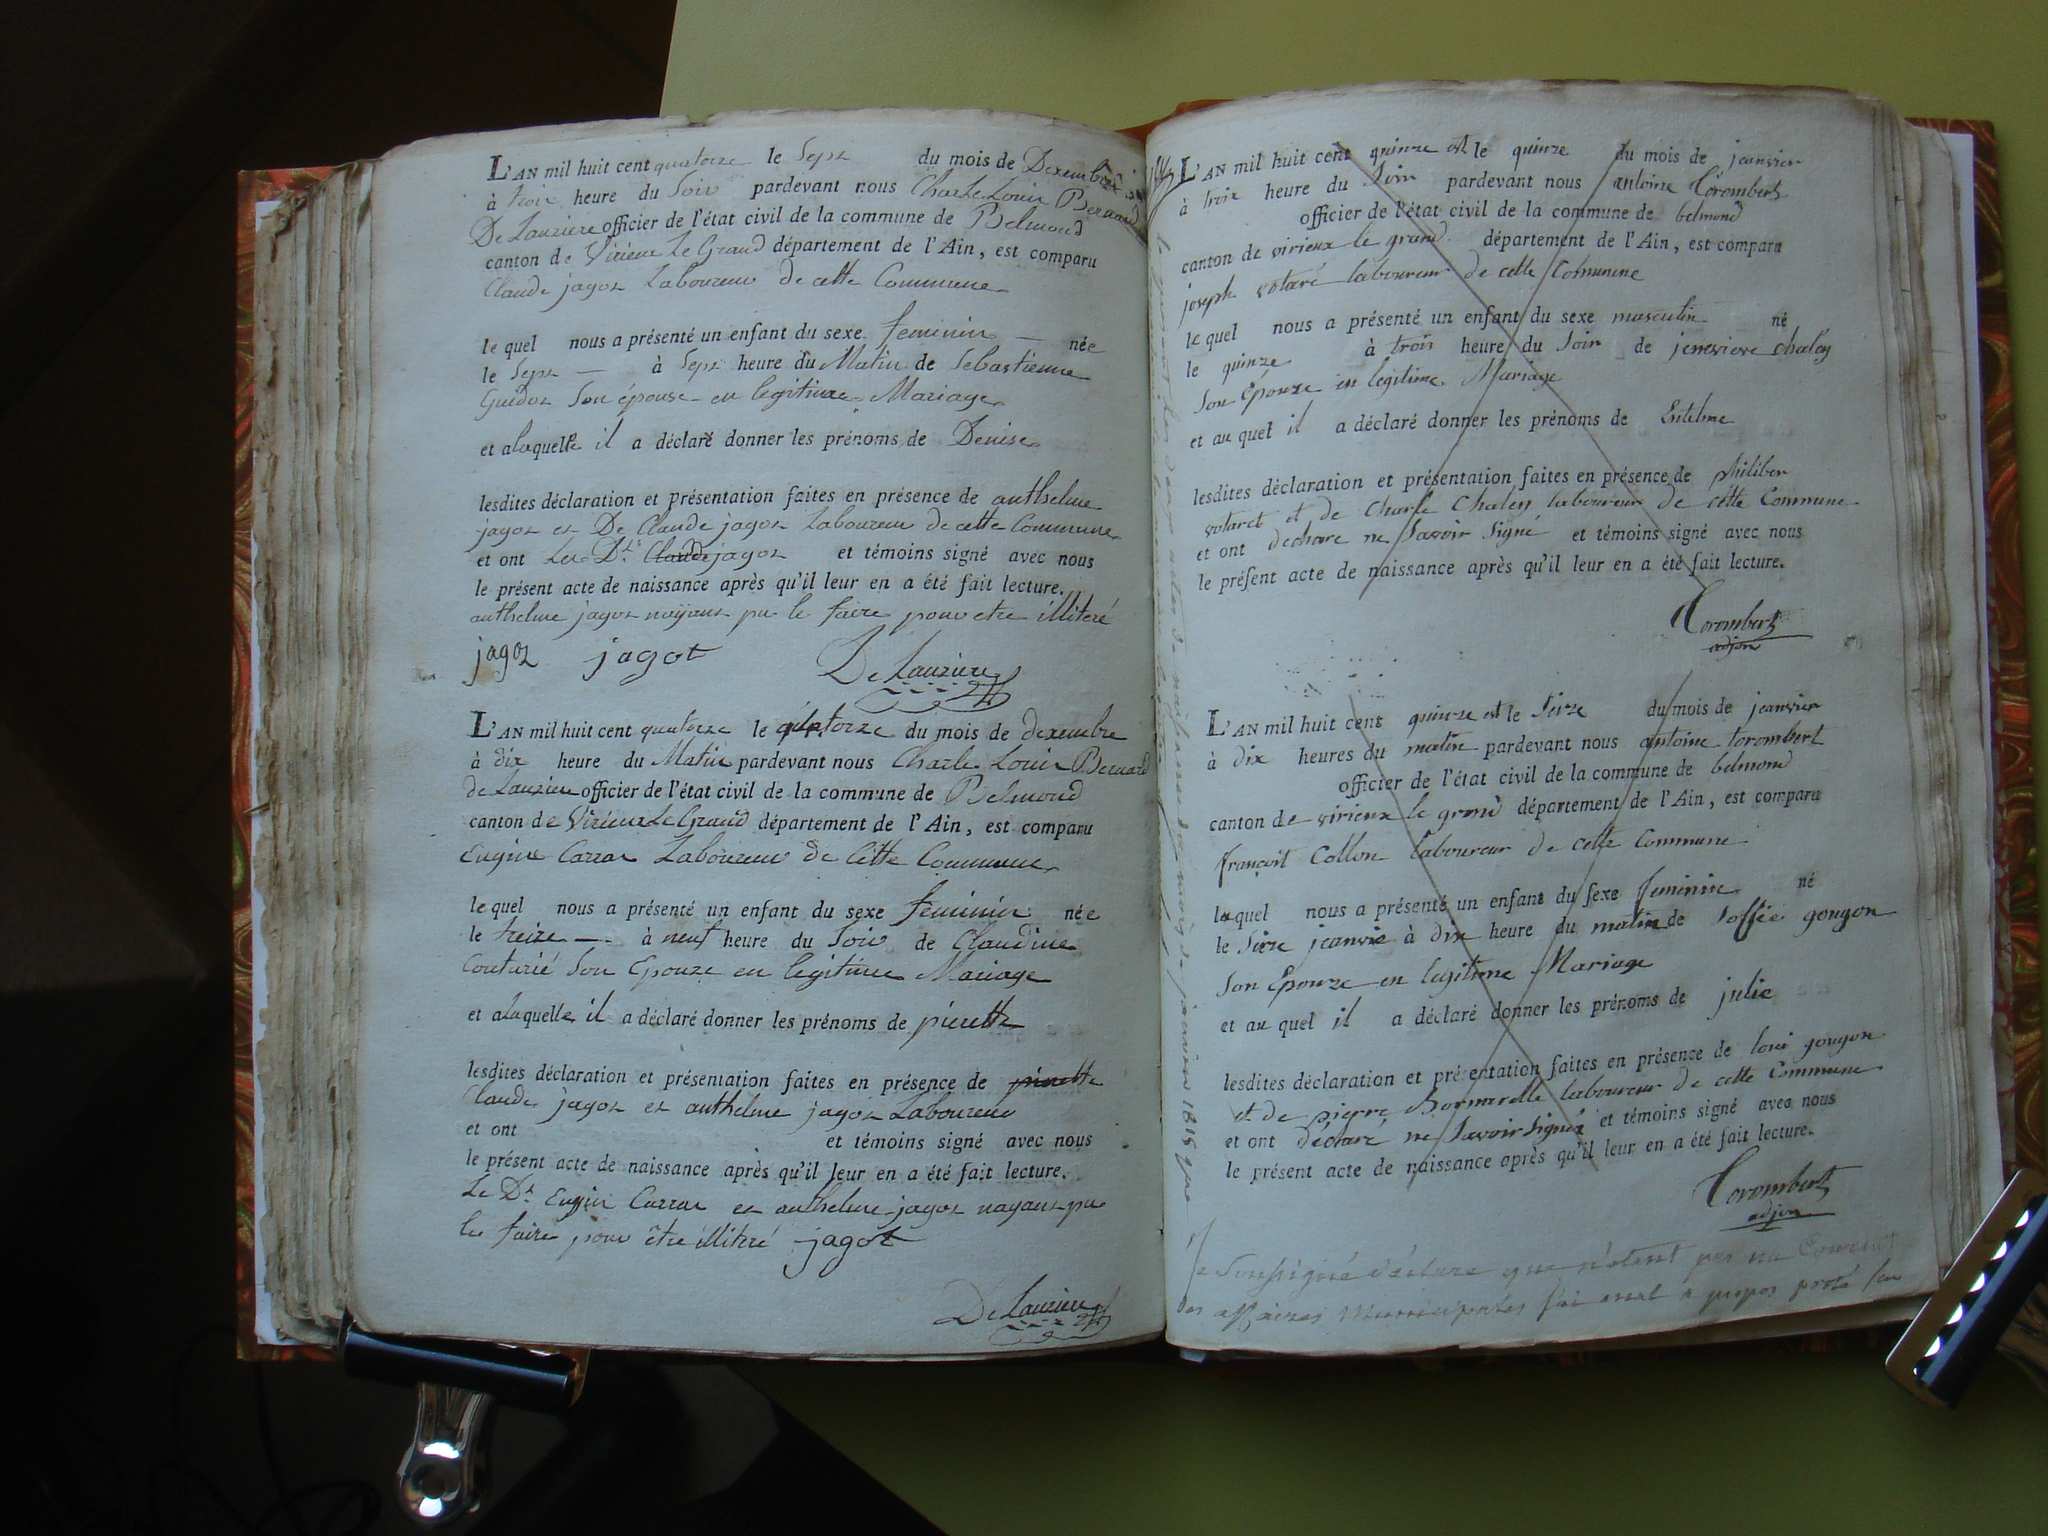 L'AN mil huit cent quatorze le Sept du mois de Dexembre
à trois heure du Soir pardevant nous Charle Louis Bernard
De Lauziere officier de l'état civil de la commune de Belmond
canton de Virieux Le Grand département de l'Ain, est comparu
Claude jagot Laboureur de cette Commune
le quel nous a présenté un enfant du sexe feminin née
le Sept à Sept heure du Matin de Sebastienne
Guidot Son épouse en legitime Mariage
et alaquelle il a déclaré donner les prénoms de Denise
lesdites déclaration et présentation faites en présence de anthelme
jagot et De Claude jagot Laboureur de cette Commune
et ont Les Dts Claude jagot et témoins signé avec nous
le présent acte de naissance après qu'il leur en a été fait lecture.
anthelme jagot nayant pu le faire pour etre illiteré
jagot jagot De Lauziere
L'AN mil huit cent quatorze le quatorze du mois de dexembre
à dix heure du Matin pardevant nous Charle Louis Bernard
de Lauziere officier de l'état civil de la commune de Belmond
canton de Virieux Le Grand département de l'Ain, est comparu
Eugine Carrar Laboureur de Cette Commune
le quel nous a présenté un enfant du sexe feminin née
le treize à neuf heure du Soir de Claudine
Couturié Son Epouze en legitime Mariage
et alaquelle il a déclaré donner les prénoms de pierette
lesdites déclaration et présentation faites en présence de pierette
Claude jagot et anthelme jagot Laboureur
et ont et témoins signé avec nous
le présent acte de naissance après qu'il leur en a été fait lecture.
Le Dt Eugin Carrar et anthelme jagot nayant pu
le faire pour être illiteré jagot
De Lauziere
L'AN mil huit cent quinze et le quinze du mois de jeanvier
à trois heure du Soir pardevant nous antoine Torombert
officier de l'état civil de la commune de belmond
canton de virieux le grand département de l'Ain, est comparu
joseph votaré laboureur de cette Commune
le quel nous a présenté un enfant du sexe masculin né
le quinze à trois heure du Soir de jenevieve chaley
Son Epouze en legitime Mariage
et au quel il a déclaré donner les prénoms de Entelme
lesdites déclaration et présentation faites en présence de philiber
votaret et de Charle Chaley laboureur de cette Commune
et ont declare ne Savoir Signé et témoins signé avec nous
le présent acte de naissance après qu'il leur en a été fait lecture.
Torombert
adjoin
L'AN mil huit cent quinze et le Seize du mois de jeanvier
à dix heures du matin pardevant nous antoine torombert
officier de l'état civil de la commune de belmond
canton de virieux le grand département de l'Ain, est comparu
françoit Collon laboureur de cette Commune
laquel nous a présenté un enfant du sexe feminin né
le Seize jeanvie à dix heure du matin de Soffée gougon
Son Epouze en legitime Mariage
et au quel il a déclaré donner les prénoms de julie
lesdites déclaration et présentation faites en présence de loui gougon
et de pierre Bornarelle laboureur de cette Commune
et ont déclaré ne Savoir Signé et témoins signé avec nous
le présent acte de naissance après qu'il leur en a été fait lecture.
Torombert
adjoin
Je Soussigné déclare que n'etant pas au Courant
des affaires Municipales j'ai mal a propos porté sur
le de naissance du mois de janvier 1815 que